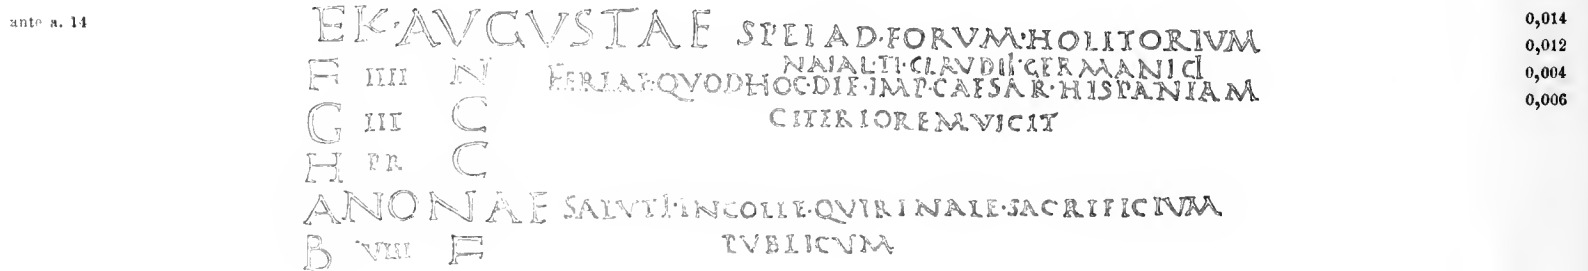 ante a. 14
EK·AVGVSTAE SPEI AD·FORVM·HOLITORIVM 0,014
NATAL·TI·CLAVDII·GERMANICI 0,012
F IIII N FERIAE·QVOD HOC·DIE·IMP·CAESAR·HISPANIAM 0,004
G III C CITERIOREM·VICIT 0,006
H PR C
ANONAE SALVTI·IN COLLE·QVIRINALE·SACRIFICIVM
B VIII F PVBLICVM